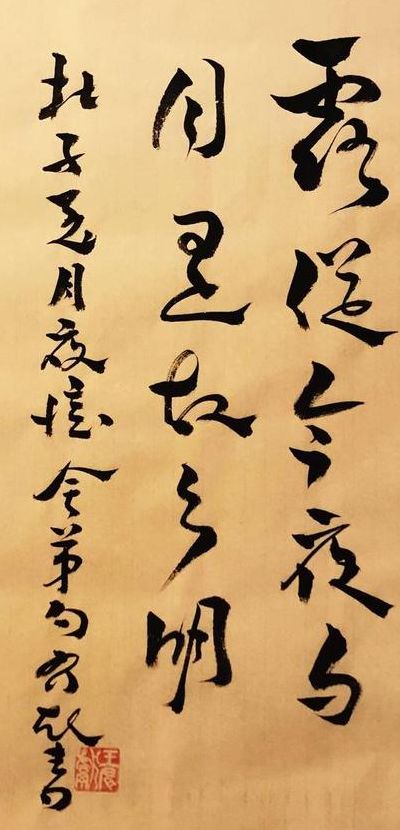 露從今夜白
月是故鄉明
杜子美月夜憶舍弟句